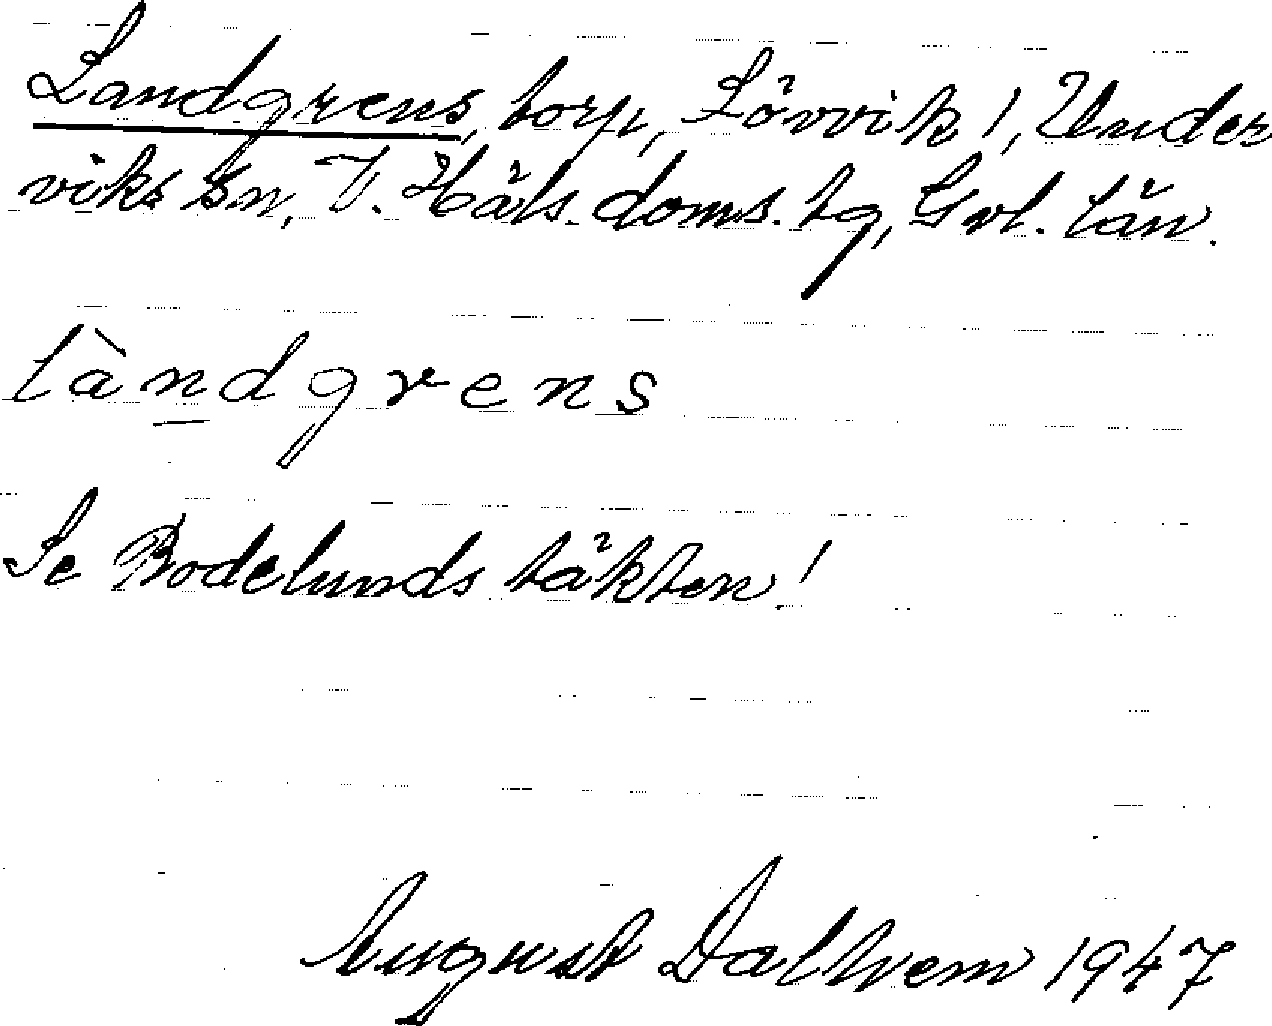 Landgrens, torp, Lövvik 1, Under
viks sn, V. Häls. doms. tg, Gvl. län.
làndgrens
Se Bodelundstäkten!
August Dalhem 1947